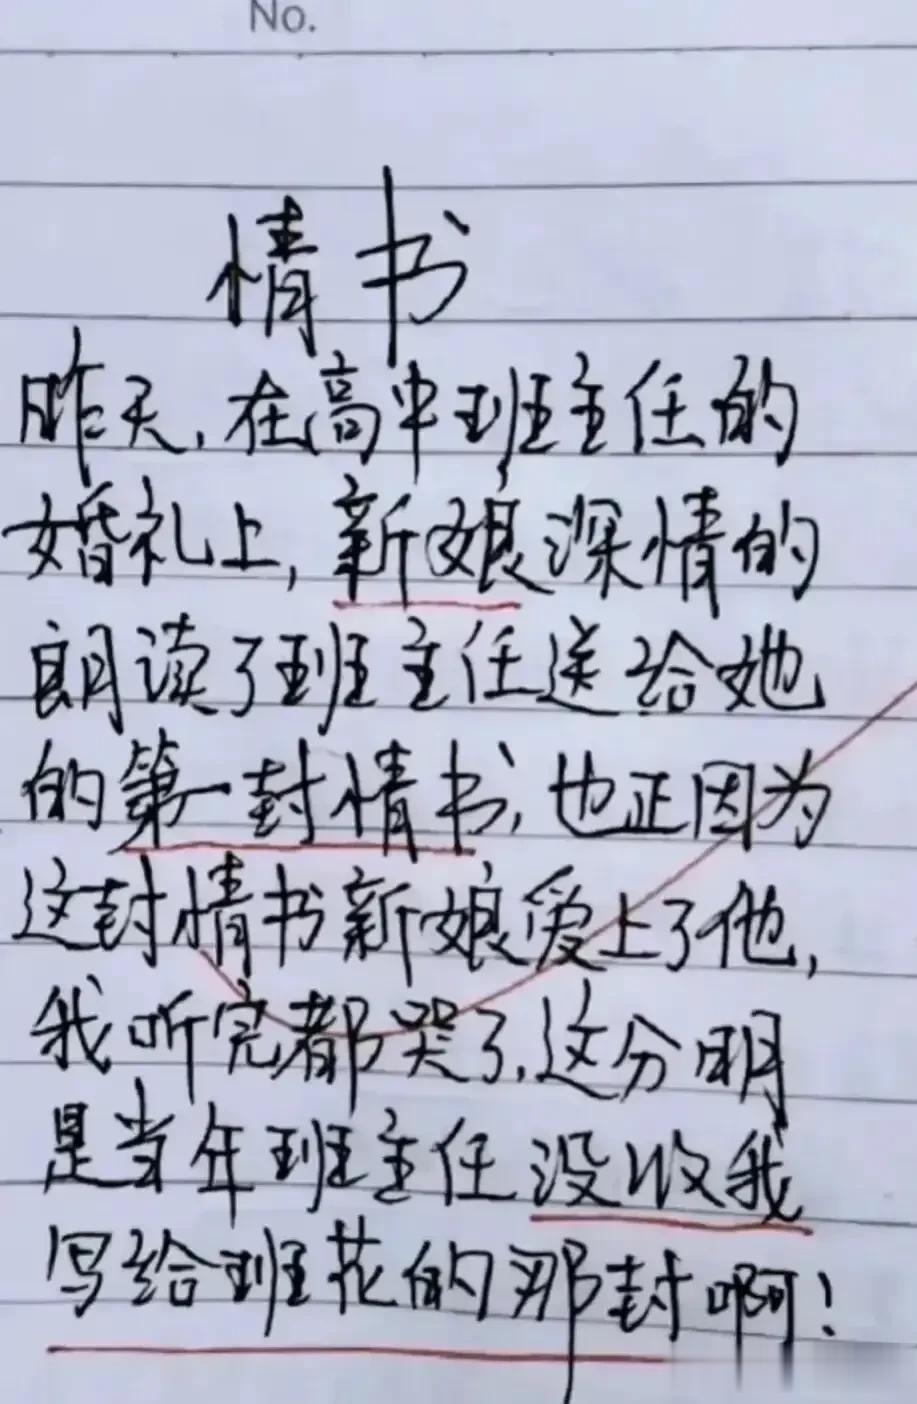 No.
情书
昨天，在高中班主任的
婚礼上，新娘深情的
朗读了班主任送给她
的第一封情书，也正因为
这封情书新娘爱上了他，
我听完都哭了，这分明
是当年班主任没收我
写给班花的那封啊！